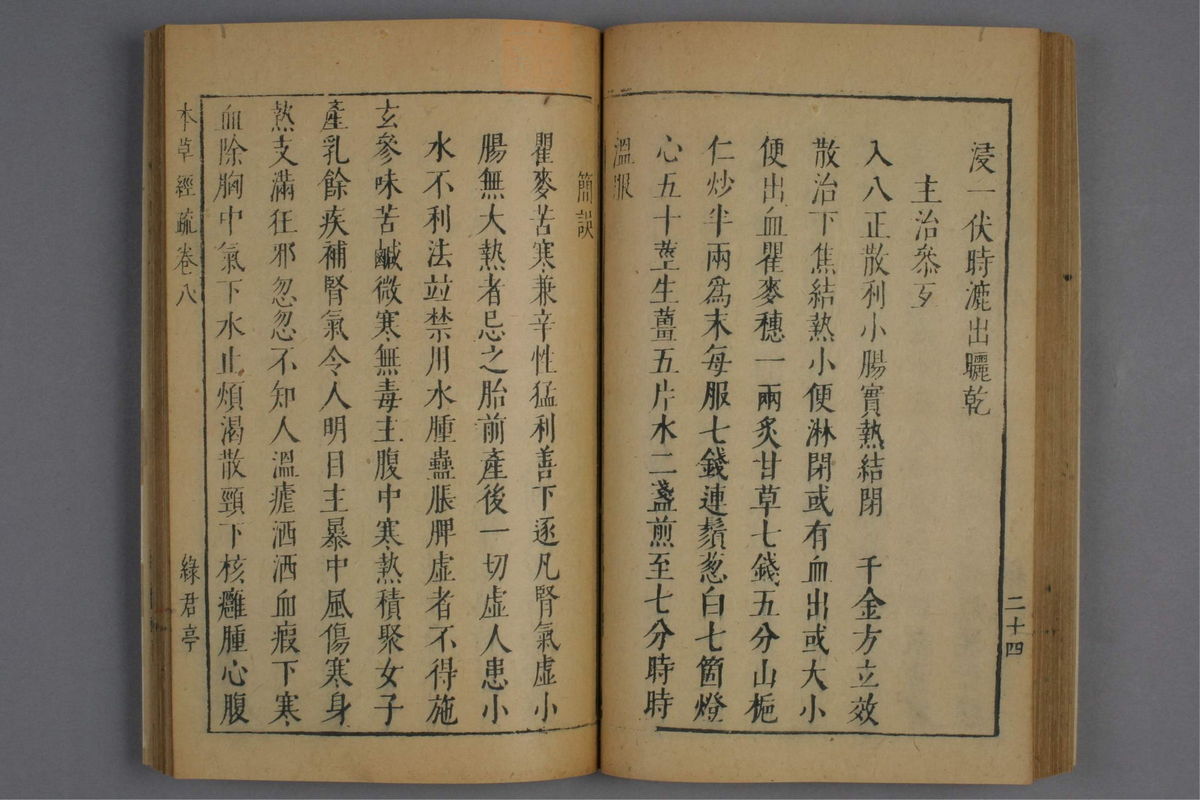 浸一伏時漉出曬乾
主治叅互
入八正散利小腸實熱結閉 千金方立效
散治下焦結熱小便淋閉或有血出或大小
便出血瞿麥穗一兩炙甘草七錢五分山梔
仁炒半兩爲末每服七錢連鬚葱白七箇燈
心五十莖生薑五片水二盞煎至七分時時
溫服
簡誤
瞿麥苦寒兼辛性猛利善下逐凡腎氣虛小
腸無大熱者忌之胎前產後一切虛人患小
水不利法竝禁用水腫蠱脹脾虛者不得施
玄參味苦鹹微寒無毒主腹中寒熱積聚女子
產乳餘疾補腎氣令人明目主暴中風傷寒身
熱支滿狂邪忽忽不知人溫瘧洒洒血瘕下寒
血除胸中氣下水止煩渴散頸下核癰腫心腹
本草經疏卷八
綠君亭
二十四